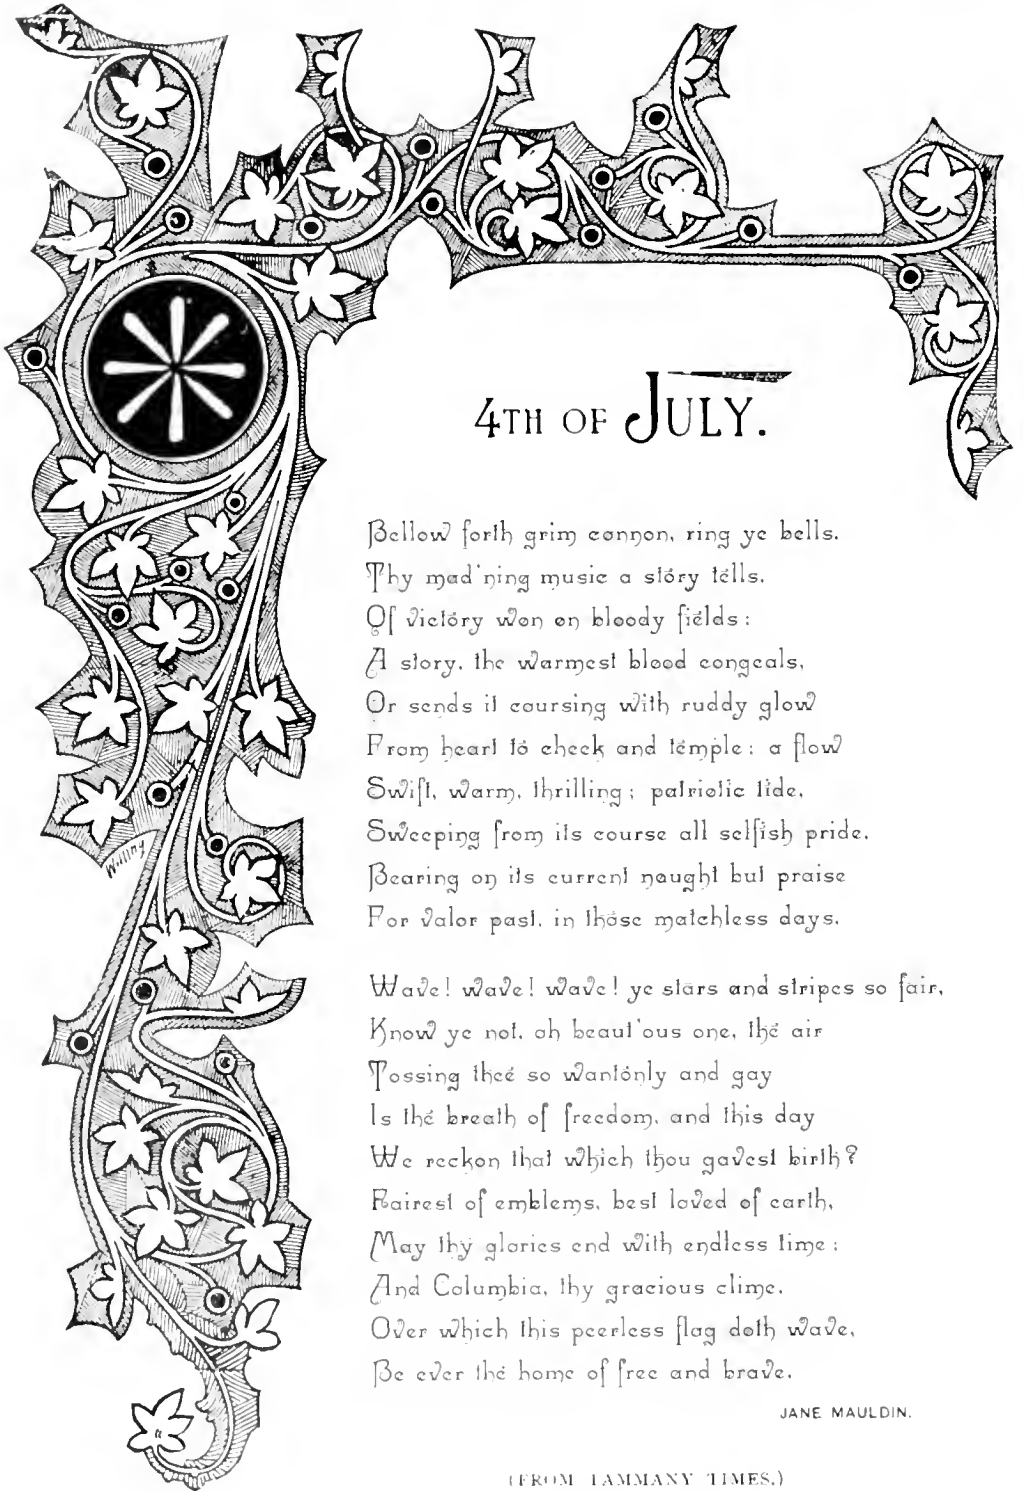 4TH OF JULY.
Bellow forth grim cannon, ring ye bells.
Thy mad'ning music a story tells.
Of victory won on bloody fields:
A story, the warmest blood congeals,
Or sends it coursing with ruddy glow
From heart to cheek and temple: a flow
Swift, warm, thrilling; patriotic tide,
Sweeping from its course all selfish pride.
Bearing on its current naught but praise
For valor past, in those matchless days.
Wave! wave! wave! ye stars and stripes so fair,
Know ye not, oh beaut'ous one, the air
Tossing thee so wantonly and gay
Is the breath of freedom, and this day
We reckon that which thou gavest birth?
Fairest of emblems, best loved of earth,
May thy glories end with endless time:
And Columbia, thy gracious clime,
Over which this peerless flag doth wave,
Be ever the home of free and brave.
JANE MAULDIN.
(FROM TAMMANY TIMES.)
Willing